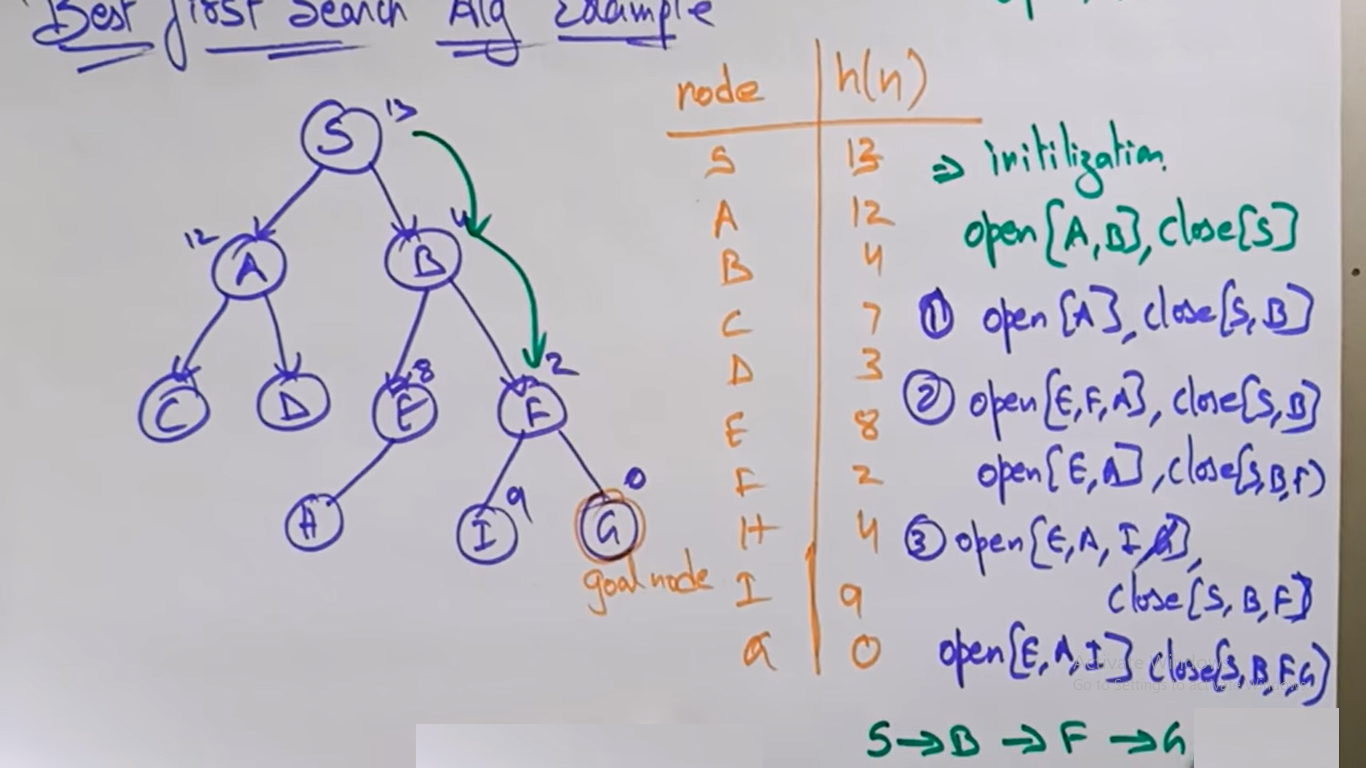 Best first Search Alg Example
S 13
12 A
B 4
C
D
E 8
F 2
H
I 9
G 0
goal node
node h(n)
S 13
A 12
B 4
C 7
D 3
E 8
F 2
H 4
I 9
G 0
⇒ initilization.
open[A,B], close[S]
① open[A], close[S,B]
② open[E,F,A], close[S,B]
open[E,A], close[S,B,F)
③ open[E,A,I,G],
close[S,B,F]
open[E,A,I] close[S,B,F,G)
S→B→F→G
Activate Windows
Go to Settings to activate Windows.